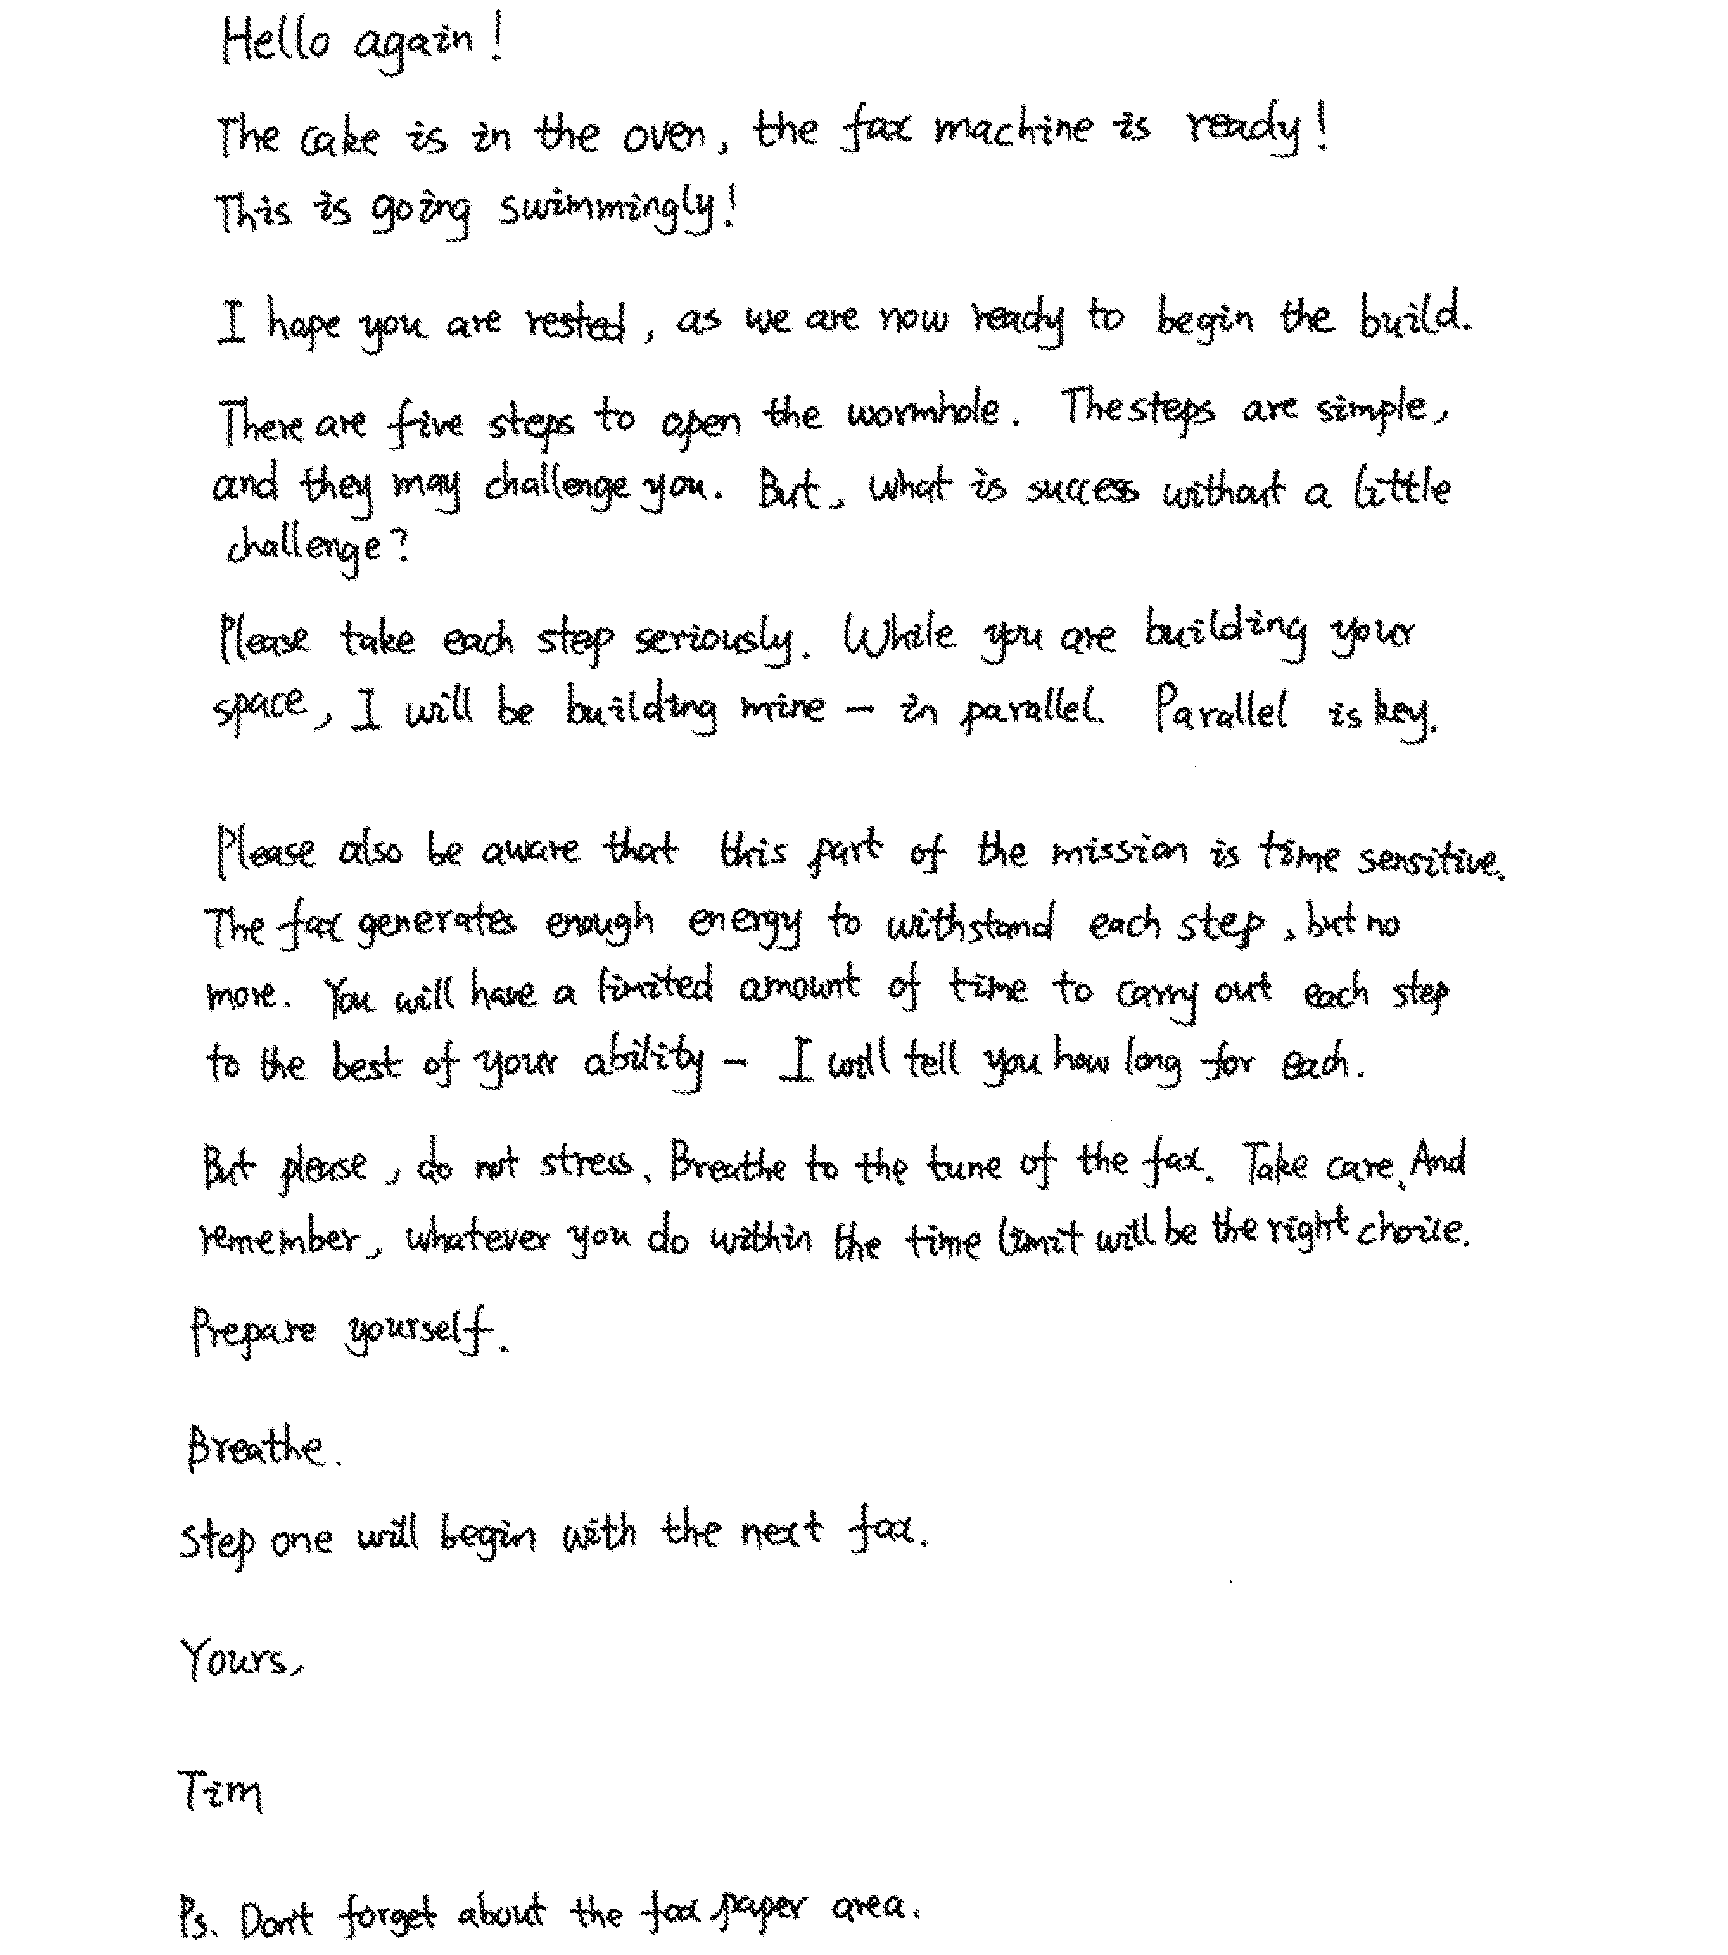 Hello again!
The cake is in the oven, the fax machine is ready!
This is going swimmingly!
I hope you are rested, as we are now ready to begin the build.
There are five steps to open the wormhole. The steps are simple,
and they may challenge you. But, what is success without a little
challenge?
Please take each step seriously. While you are building your
space, I will be building mine - in parallel. Parallel is key.
Please also be aware that this part of the mission is time sensitive.
The fax generates enough energy to withstand each step, but no
more. You will have a limited amount of time to carry out each step
to the best of your ability - I will tell you how long for each.
But please, do not stress. Breathe to the tune of the fax. Take care. And
remember, whatever you do within the time limit will be the right choice.
Prepare yourself.
Breathe.
Step one will begin with the next fax.
Yours,
Tim
Ps. Don't forget about the fax paper area.